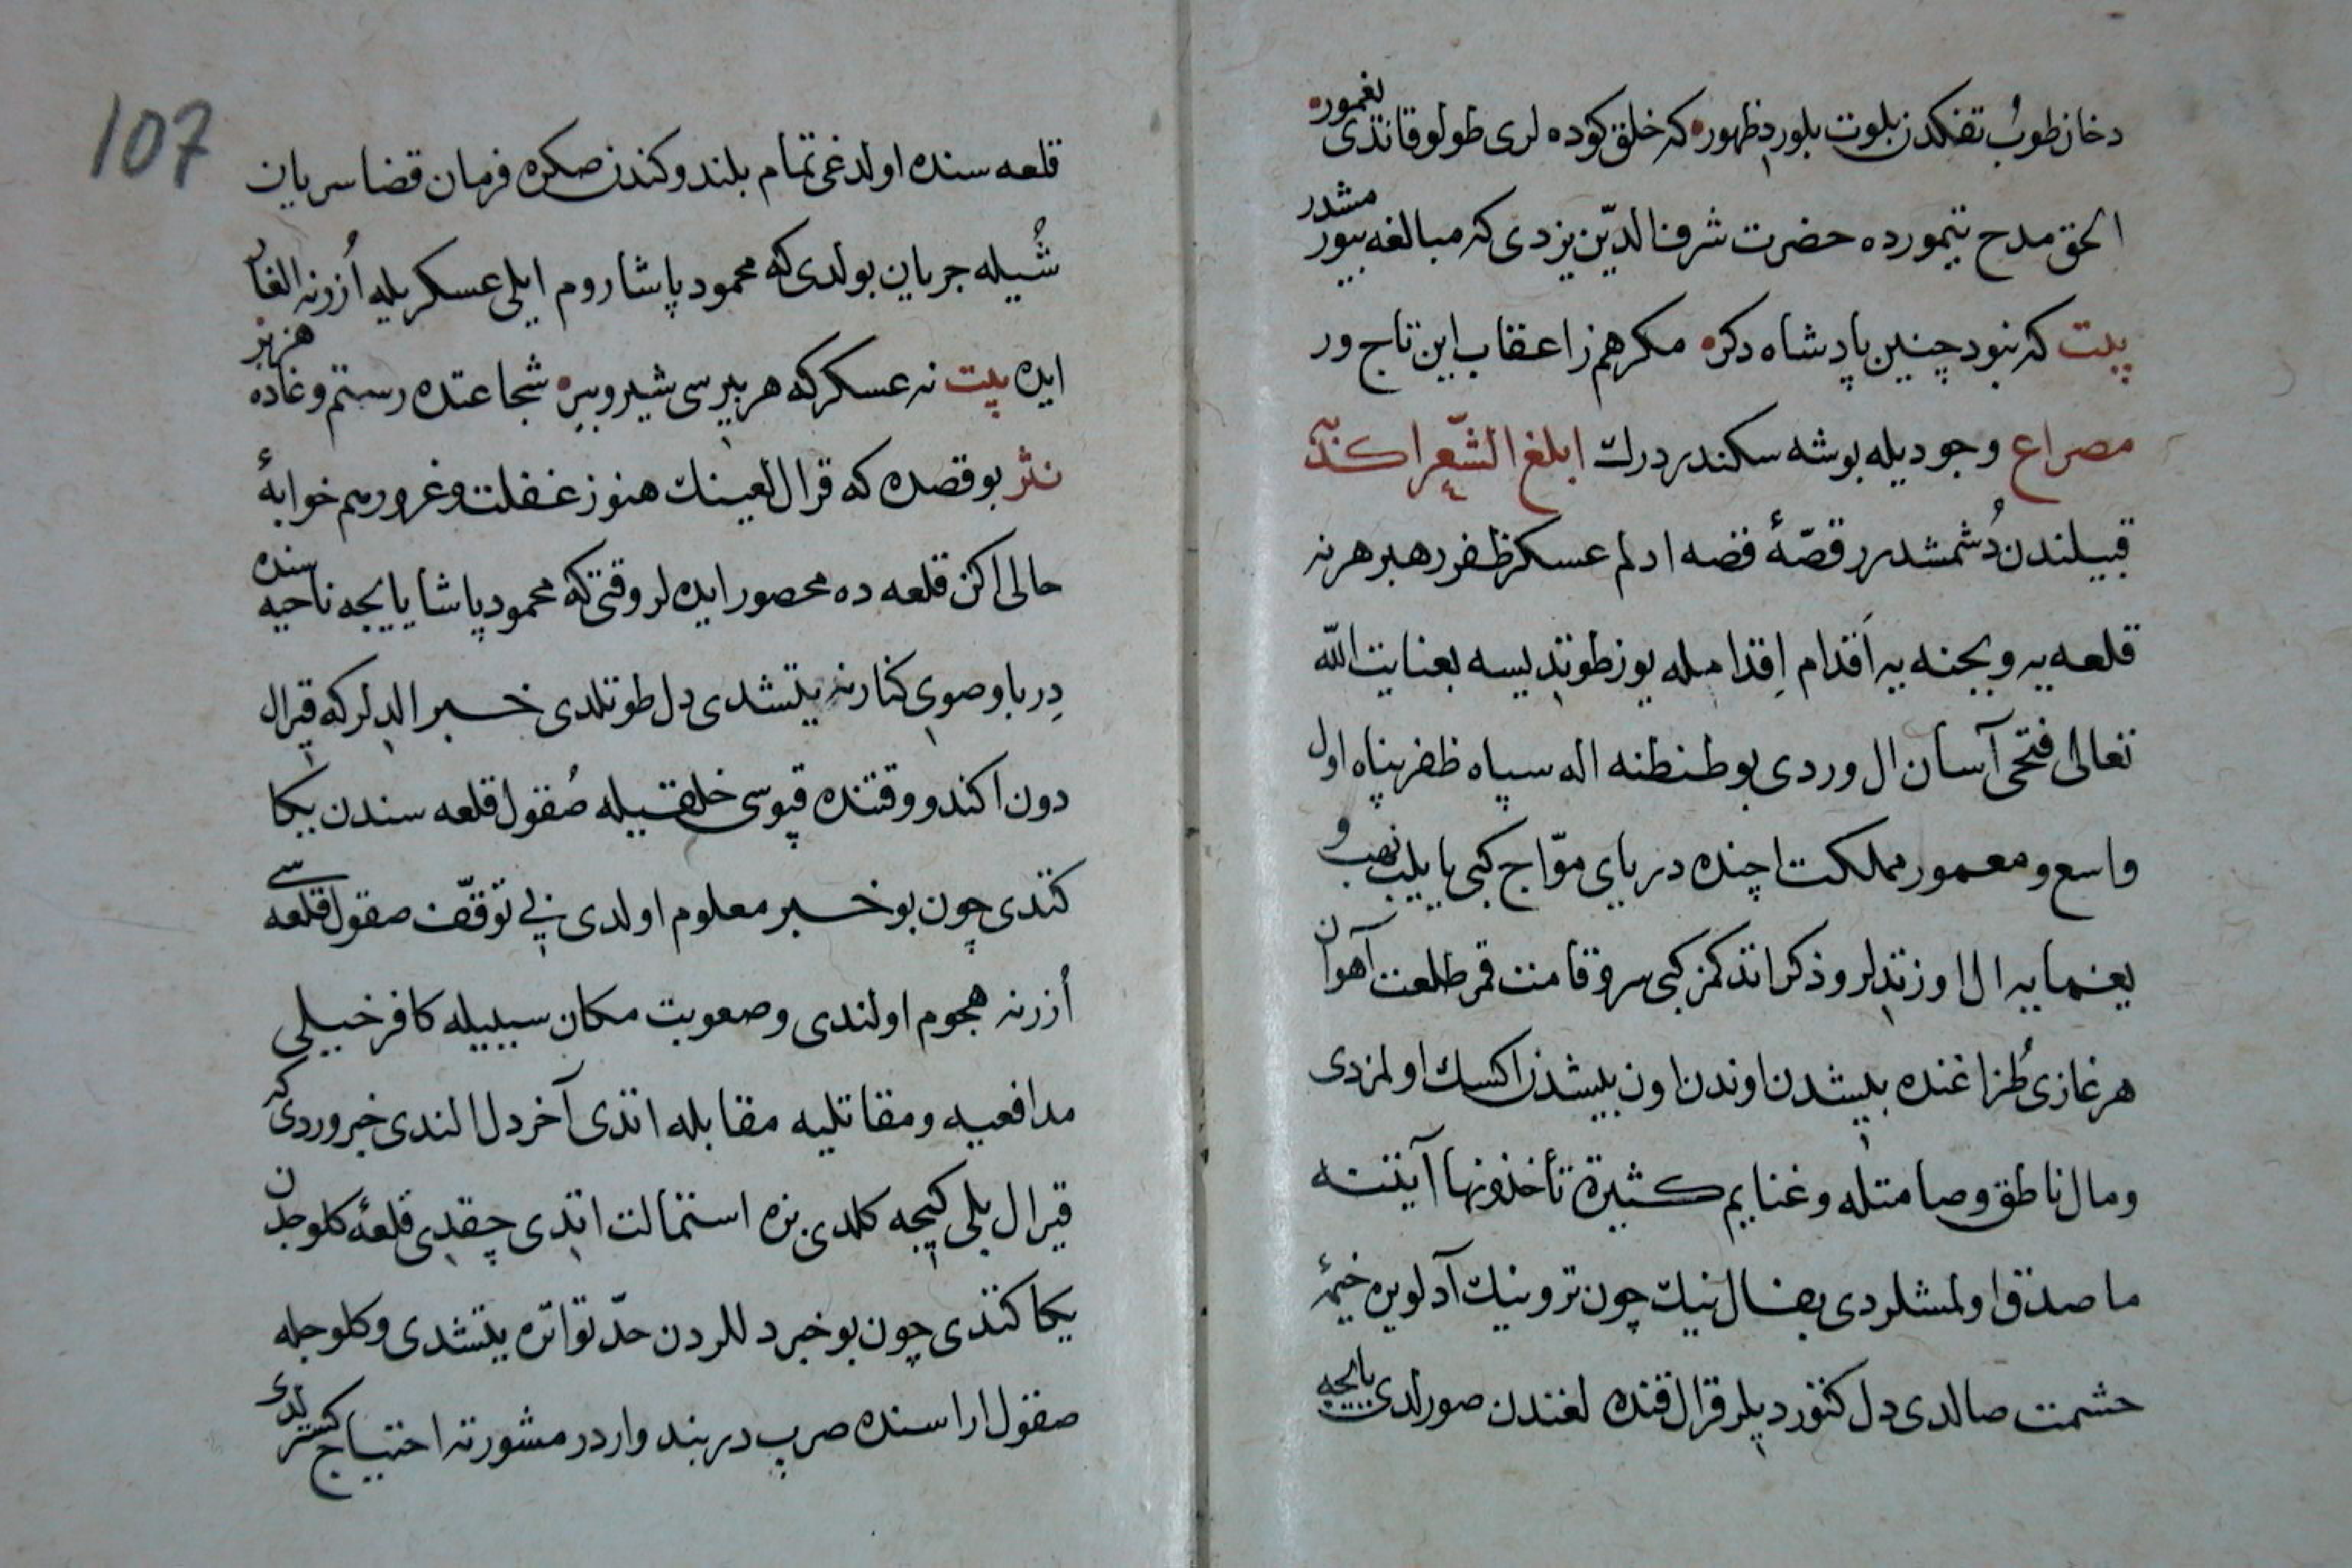 دخان طوب تفنكدن بلوت بلوردظهوره كه خلق كوده لرى طولو قاندى يغموره
الحق مدح تيمورده حضرت شرف الدّين يزدى كه مبالغه بيورمشدر
بيت كه نبود چنين پادشاه دكره مكر هم ز اعقاب اين تاج ور
مصراع وجوديله بوشه سكندردرك ابلغ الشّعرا كندّ
قبيلندن دُشمشدرر قصّهٔ فضه ادلم عسكر ظفر رهبر هر نه
قلعه يه و بجنه يه اَقدام اِقدامله يوز طوتديسه بعنايت اللّه
تعالى فتحى آسان ال وردى بو طنطنه اله سپاه ظفرپناه اول
واسع و معمور مملكت اچنده درياى موّاج كبى يايلب نهب و
يغمايه ال اوزتدلر و ذكر اتدكمز كبى سرو قامت قمر طلعت آهوان
هر غازى طُزاغنده بيشدن اوندن اون بيشدن اكسك اولمزدى
و مال ناطق و صامتله و غنايم كثيرة تأخذونها آيتنه
ما صدق اولمشلردى بفال نيك چون ترونيك آدلو يره خيمهٔ
حشمت صالدى دل كتورديلر قرال قنده لغندن صورلدى يايجه
107
قلعه سنده اولدغى تمام بلندوكندن صكره فرمان قضا سريان
شُيله جريان بولدى كه محمود پاشا روم ايلى عسكريله اُزرنه الغار
ايده بيت نه عسكر كه هر بيرسى شير و ببره شجاعتده رستم و غاده هزبر
نثر بو قصده كه قرال لعينك هنوز غفلت و غرورم خوابهٔ
حالى اكن قلعه ده محصور ايده لر وقتى كه محمود پاشا يايجه ناحيه سنده
دِرباو صوى كنارنه يتشدى دل طوتلدى خبر الدلر كه قيرال
دون اكندو وقتنده قپوسى خلقيله صُقول قلعه سندن يكا
كتدى چون بو خبر معلوم اولدى بى توقّف صقول قلعه سى
اُزرنه هجوم اولندى و صعوبت مكان سببيله كافر خيلى
مدافعيه و مقاتليه مقابله اتدى آخر دل الندى خبر وردى كه
قيرال بلى كيجه كلدى بزه استمالت اتدى چقدى قلعهٔ كلوجدن
يكا كتدى چون بو خبر دللردن حدّ تواتره يتشدى و كلوجله
صقول اراسنده صرپ دربند واردر مشورته احتياج كستر لدى